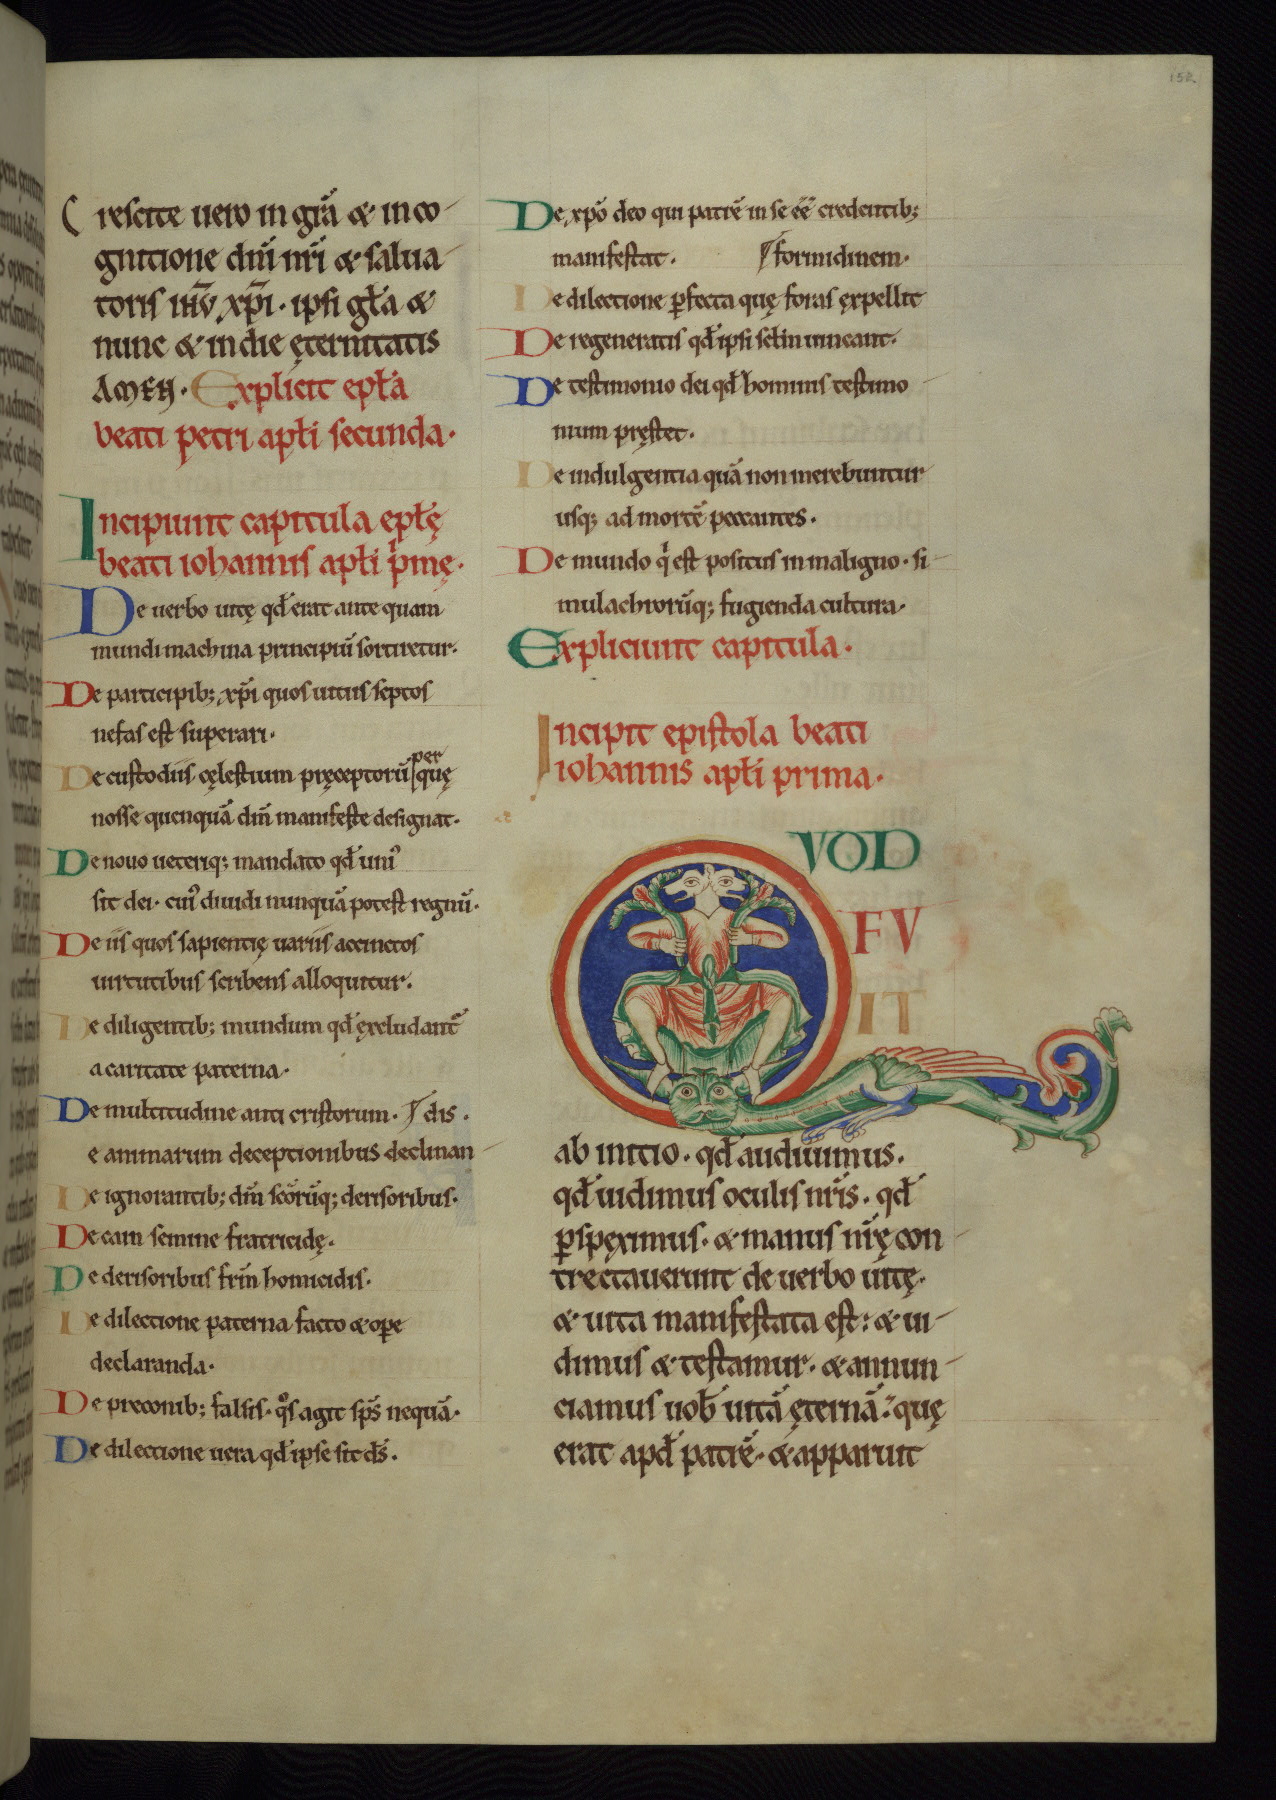 152
Crescite uero in gr̄a & in co-
gnitione dn̄i nr̄i & salua-
toris ih̄u xp̄i. ipsi gl̄a &
nunc & in die ęternitatis
AMEN. Explicit epl̄a
beati petri apl̄i secunda.
Incipiunt capitula epl̄ę
beati iohannis apl̄i pͥmę.
De uerbo uitę qd̄ erat ante quam
mundi machina principiū sortiretur.
De participib; xp̄i quos uitiis septos
nefas est superari.
De custodiis cęlestium pręceptorū per quę
nosse quenquā dn̄m manifeste designat.
De nouo ueteriq; mandato qd̄ uniꝰ
sit dei. cuiꝰ diuidi nunquā potest regnū.
De iis quos sapientię uariis accinctos
uirtutibus scribens alloquitur.
De diligentib; mundum qd̄ excludant̄
a caritate paterna.
De multitudine anti cristorum. ¶ dis.
e animarum deceptionibus declinan-
De ignorantib; dm̄ scōrūq; derisoribus.
De cain semine fratricidę.
De derisoribus frm̄ homicidis.
De dilectione paterna facto & ope
declaranda.
De preconib; falsis. qͦs agit sp̄s nequā.
De dilectione uera qd̄ ipse sit dś.
De xp̄o deo qui patrē in se eē credentib;
manifestat. ¶ formidinem.
De dilectione ꝑfecta quę foras ęxpellit
De regeneratis qd̄ ipsi scl̄m uincant.
De testimonio dei qd̄ hominis testimo-
nium pręstet.
De indulgentia quā non merebuntur
usq; ad mortē peccantes.
De mundo qͥ est positus in maligno. si-
mulachrorūq; fugienda cultura.
Expliciunt capitula.
Incipit epistola beati
iohannis apl̄i prima.
QVOD
FV
IT
ab initio. qd̄ audiuimus.
qd̄ uidimus oculis nr̄is. qd̄
ꝑspęximus. & manus nr̄ę con-
trectauerunt de uerbo uitę.
& uita manifestata est: & ui-
dimus & testamur. & annun-
ciamus uob̄ uitā ęternā. quę
erat apd̄ patrē. & apparuit